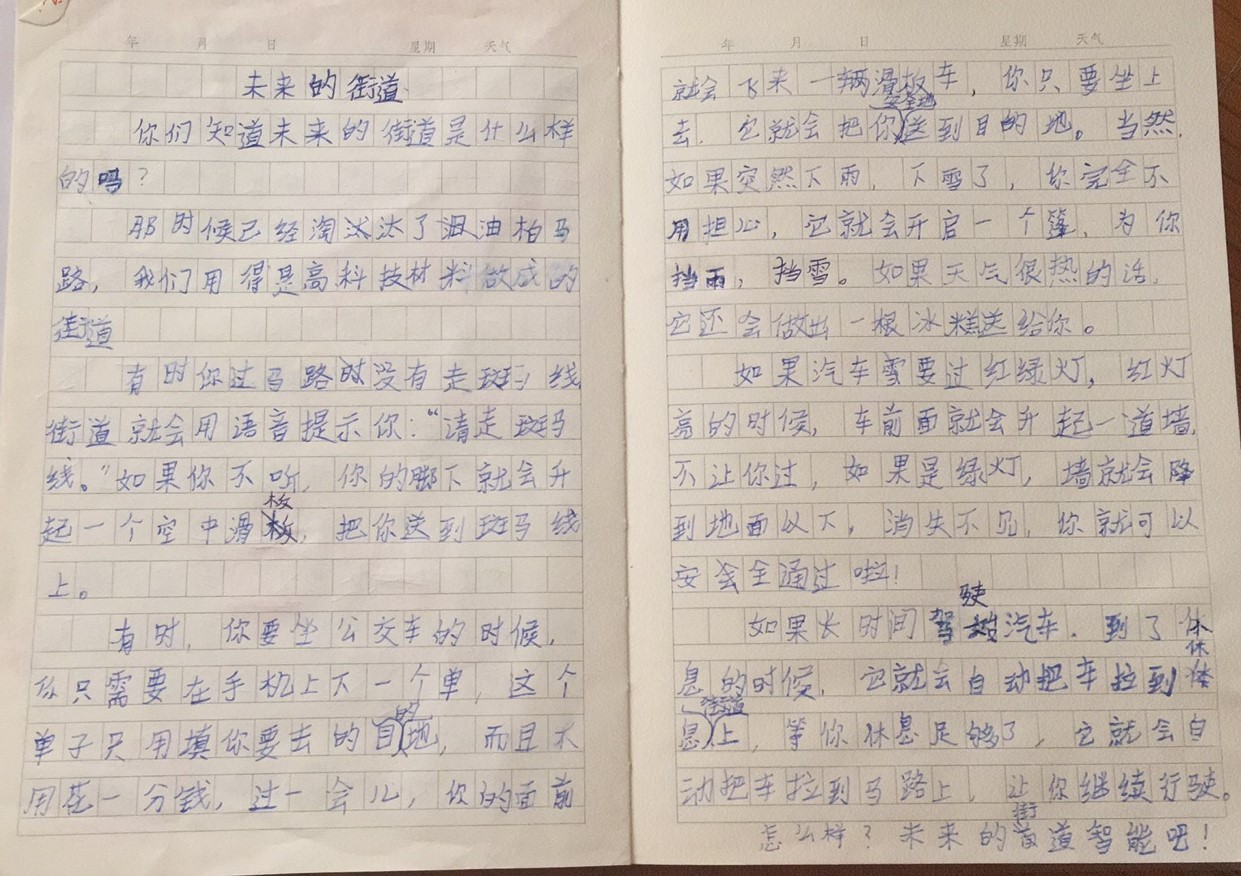 年 月 日 星期 天气
未来的街道
你们知道未来的街道是什么样
的吗?
那时候已经淘汰汰了沮油柏马
路,我们用得是高科技材料做成的
街道
有时你过马路时没有走斑马线
街道就会用语音提示你:“请走斑马
线。”如果你不听,你的脚下就会升
板
起一个空中滑板,把你送到斑马线
上。
有时,你要坐公交车的时候,
你只需要在手机上下一个单,这个
的
单子只用填你要去的目地,而且不
用花一分钱,过一会儿,你的面前
年 月 日 星期 天气
就会飞来一辆滑板车,你只要坐上
安全地
去,它就会把你送到目的地。当然,
如果突然下雨,下雪了,你完全不
用担心,它就会开启一个篷,为你
挡雨,挡雪。如果天气很热的话,
它还会做出一根冰糕送给你。
如果汽车需要过红绿灯,红灯
亮的时候,车前面就会升起一道墙,
不让你过,如果是绿灯,墙就会降
到地面以下,消失不见,你就可以
安会全通过啦!
驶
如果长时间驾汽车,到了休
休
息的时候,它就会自动把车拉到
街道
息上,等你休息足够了,它就会自
动把车拉到马路上,让你继续行驶。
街
怎么样?未来的道智能吧!